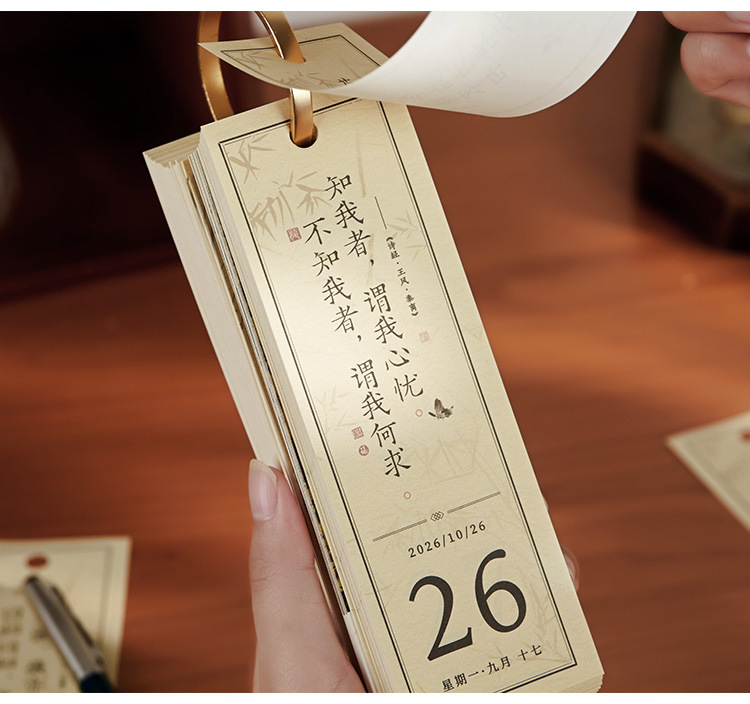 知我者，谓我心忧
不知我者，谓我何求
——《诗经·王风·黍离》
2026/10/26
26
星期一·九月 十七